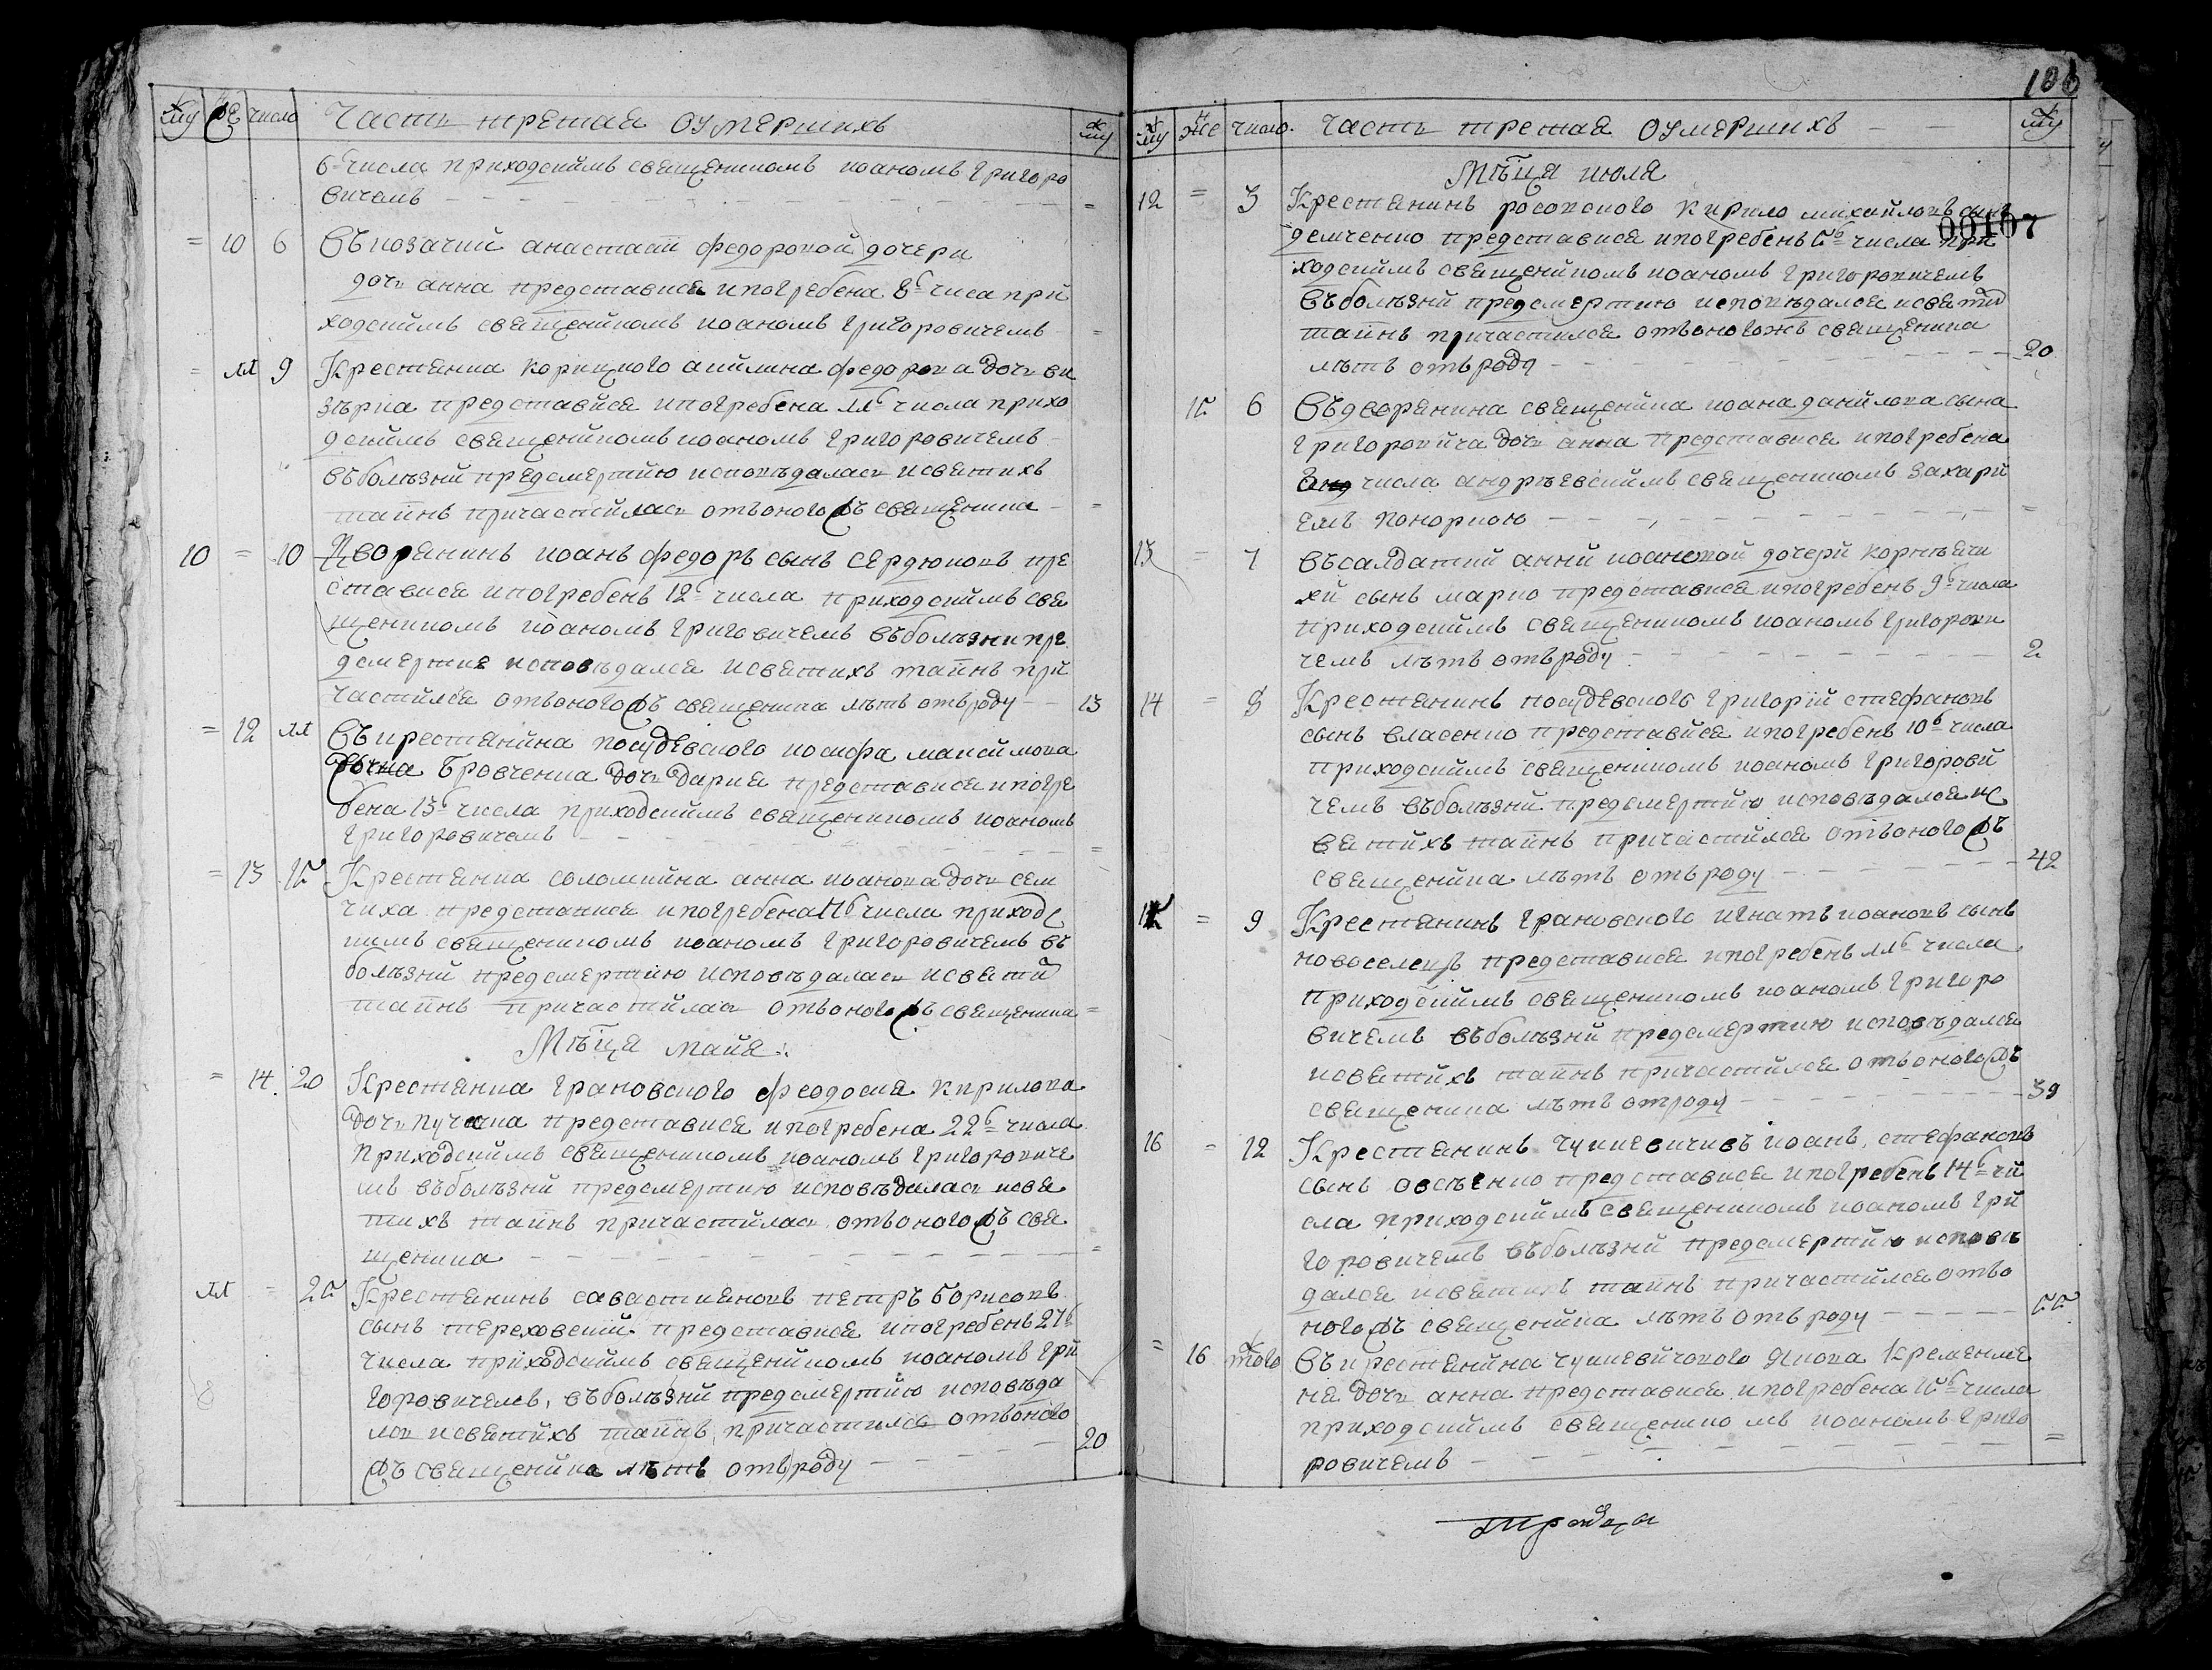 му же число Часть третая оумершихъ му
6 числа приходскимъ священикомъ иоаномъ григоро
вичемъ =
= 10 6 Въ козачки анастасии федоровой дочери
дочь анна представися и погребена 8 числа при
ходскимъ священикомъ иоаномъ григоровичемъ =
= 11 9 Крестянка корицкого акилина федорова дочь
представися и погребена 11 числа прихо
дскимъ священикомъ иоаномъ григоровичемъ
въ болѣзни предсмертию исповѣдалась и святихъ
таинъ причастилась отъ оного жъ священика =
10 = 10 Дворянинъ иоанъ федоръ сынъ сердюковъ пре
ставися и погребенъ 12 числа приходскимъ свя
щеникомъ иоаномъ григовичемъ въ болѣзни пре
дсмертие исповѣдался и святихъ таинъ при
частился отъ оного жъ священика лѣтъ отъ роду 13
= 12 11 Въ крестянина посудевского иосифа максимова
бровченка дочь дария представися и погре
бена 13 числа приходскимъ священикомъ иоаномъ
григоровичемъ =
= 13 15 Крестянка соломкина анна иоанова дочь сем
чиха представися и погребена числа приходс
кимъ священикомъ иоаномъ григоровичемъ въ
болѣзни предсмертию исповѣдалась и святи
таинъ причастилась отъ оного жъ священика =
Мѣсца майя
= 14 20 Крестянка грановского феодосия кирилова
дочь представися и погребена 22 числа
приходскимъ священикомъ иоаномъ григоровиче
мъ въ болѣзни предсмертию исповѣдалась и свя
тихъ таинъ причастилась отъ оного жъ свя
щеника =
11 = 25 Крестянинъ савастияновъ петръ борисовъ
сынъ тереховский представися и погребенъ 27
числа приходскимъ священикомъ иоаномъ гри
горовичемъ, въ болѣзни предсмертию исповѣда
лси и святихъ таинъ причастился отъ оного
жъ священика лѣтъ отъ роду 20
106
му же число. часть третая оумершихъ му
Мѣсца июля
12 = 3 Крестянинъ росовского кирило михайловъ сынъ
00107
демченко представися и погребенъ 5 числа при
ходскимъ священикомъ иоаномъ григоровичемъ
въ болѣзни предсмертию исповѣдался и святи
таинъ причастился отъ оного жъ священика
лѣтъ отъ роду 20
15 6 Въ дворянина священика иоана данилова сына
григоровича дочь анна представися и погребена
числа андрѣевскимъ священикомъ захари
емъ =
13 = 7 Въ салдатки анни иоановой дочери корнѣечи
хи сынъ марко представися и погребенъ 9 числа
приходскимъ священикомъ иоаномъ григорови
чемъ лѣтъ отъ роду 2
14 = 8 Крестянинъ посудевского григорий стефановъ
сынъ власенко представися и погребенъ 10 числа
приходскимъ священикомъ иоаномъ григорови
чемъ въ болѣзни предсмертию исповѣдался и с
вятихъ таинъ причастился отъ оного жъ
священика лѣтъ отъ роду 42
15 = 9 Крестянинъ грановского игнатъ иоановъ сынъ
новоселецъ представися и погребенъ 11 числа
приходскимъ священикомъ иоаномъ григоро
вичемъ въ болѣзни предсмертию исповѣдался
и святихъ таинъ причастился отъ оного жъ
священика лѣтъ отроду 39
16 = 12 Крестянинъ чуйкевичивъ иоанъ стефановъ
сынъ овсѣенко представися и погребенъ 14 чи
сла приходскимъ священикомъ иоаномъ гри
горовичемъ въ болѣзни предсмертию исповѣ
дался и святихъ таинъ причастился отъ о
ного жъ священика лѣтъ отъ роду 55
= 16 того Въ крестянина чуйкевичового якова
дочь анна представися и погребена 15 числа
приходскимъ священикомъ иоаномъ григо
ровичемъ =